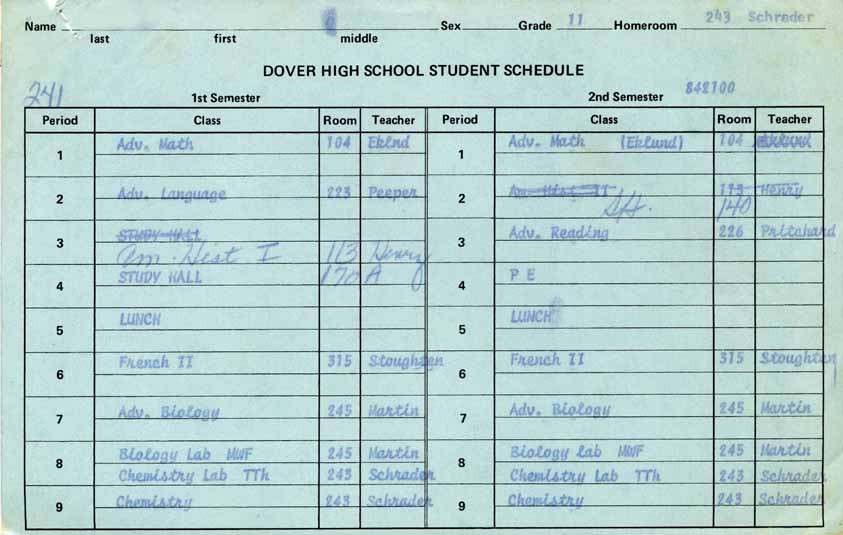 Name Sex Grade 11 Homeroom 243 Schrader
last first middle
DOVER HIGH SCHOOL STUDENT SCHEDULE
241 1st Semester 2nd Semester 842100
Period Class Room Teacher Period Class Room Teacher
1 Adv. Math 104 Eklnd 1 Adv. Math (Eklund) 104 Eklund
2 Adv. Language 223 Peeper 2 Am Hist II 113 Henry
S.H. 140
3 STUDY HALL 3 Adv. Reading 226 Pritchard
Am. Hist I 113 Henry
4 STUDY HALL 170 A 4 P E
5 LUNCH 5 LUNCH
6 French II 315 Stoughten 6 French II 315 Stoughten
7 Adv. Biology 245 Martin 7 Adv. Biology 245 Martin
8 Biology Lab MWF 245 Martin 8 Biology lab MWF 245 Martin
Chemistry Lab TTh 243 Schrader Chemistry Lab TTh 243 Schrader
9 Chemistry 243 Schrader 9 Chemistry 243 Schrader